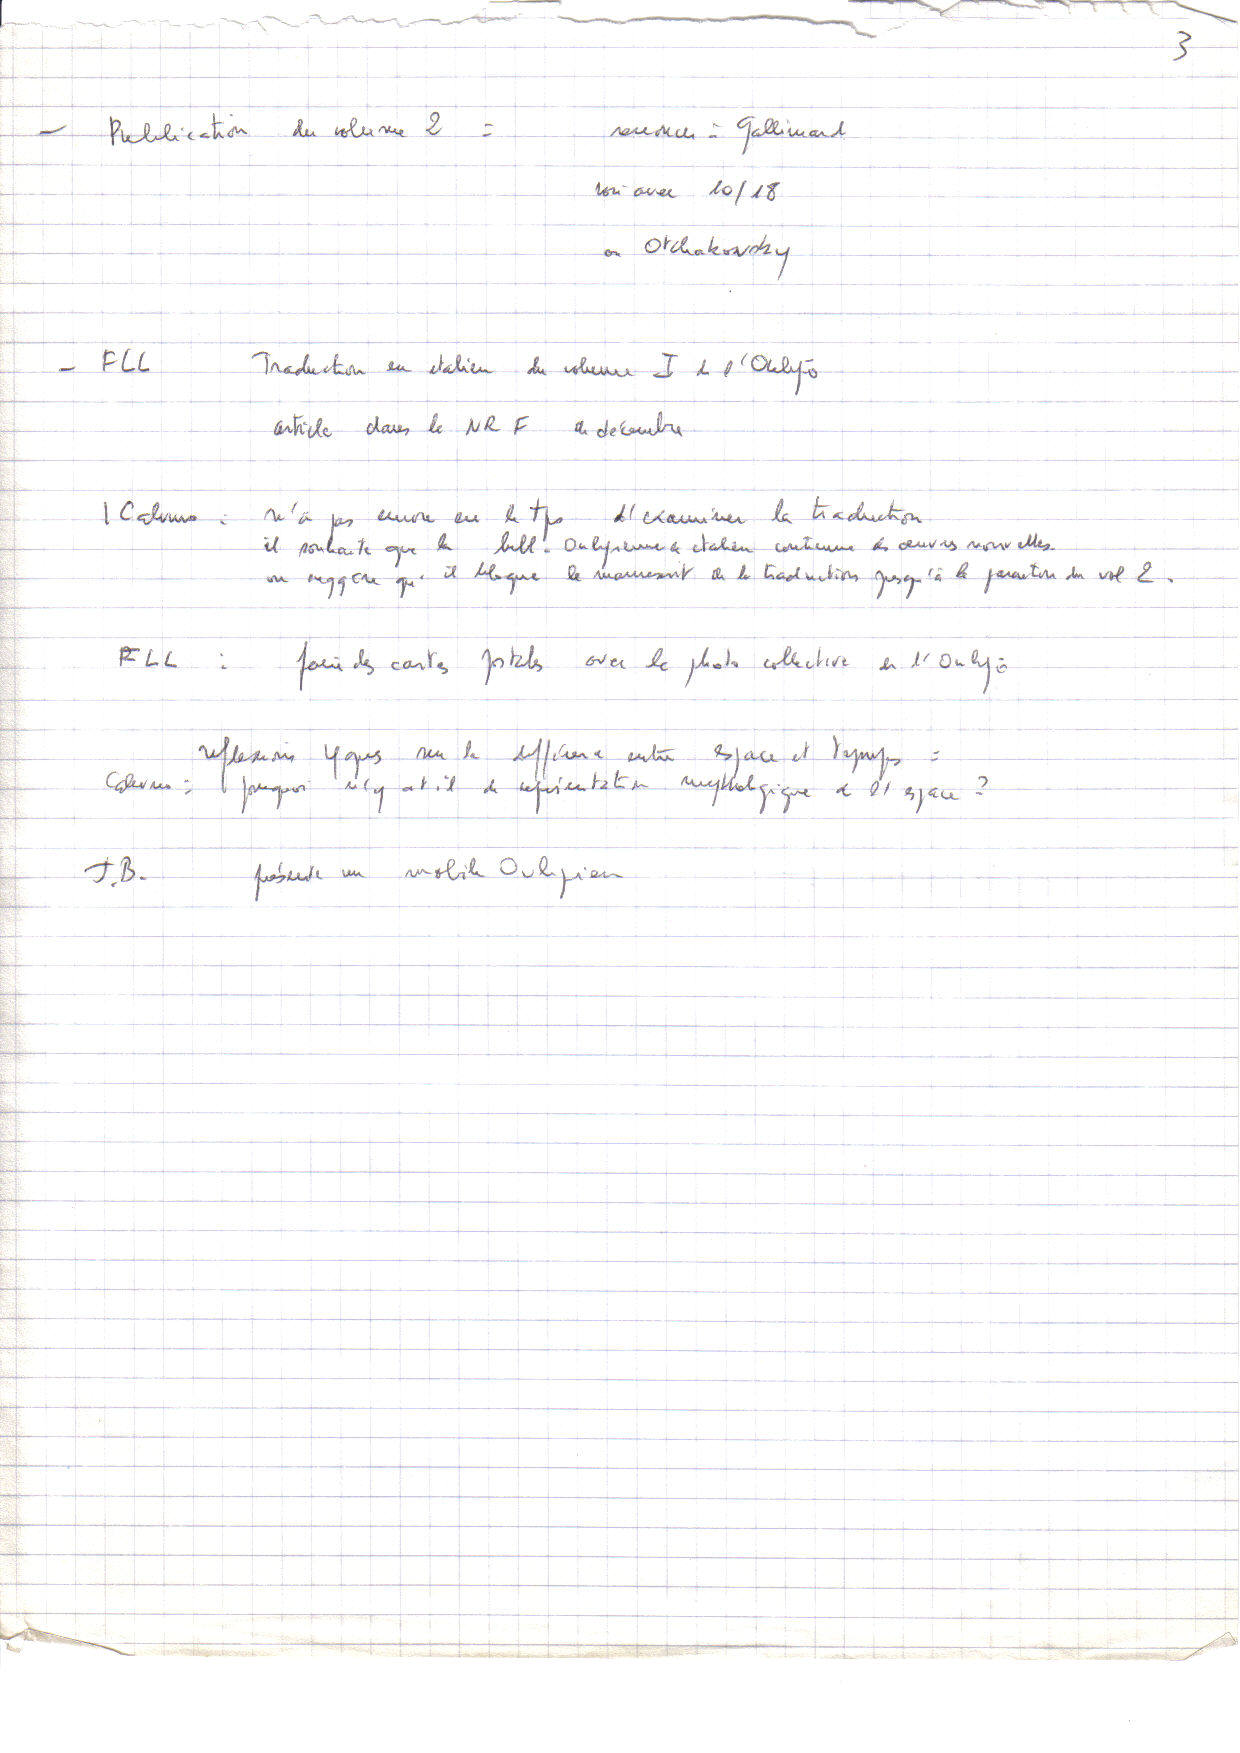 3
- Publication du volume 2 = renoncer à Gallimard
voir avec 10/18
ou Otchakowsky
- FLL Traduction en italien du volume I de l'Oulipo
article dans la NRF de décembre
I Calvino : n'a pas encore eu le tps d'examiner la traduction
il souhaite que la bibl. Oulipienne en italien contienne des œuvres nouvelles.
on suggère qu'il bloque le manuscrit de la traduction jusqu'à la parution du vol 2.
FLL : faire des cartes postales avec la photo collective de l'Oulipo
réflexions sur la différence entre espace et temps =
Calvino = pourquoi n'y a t il de représentation mythologique de l'espace ?
J.B. présente un mobile Oulipien